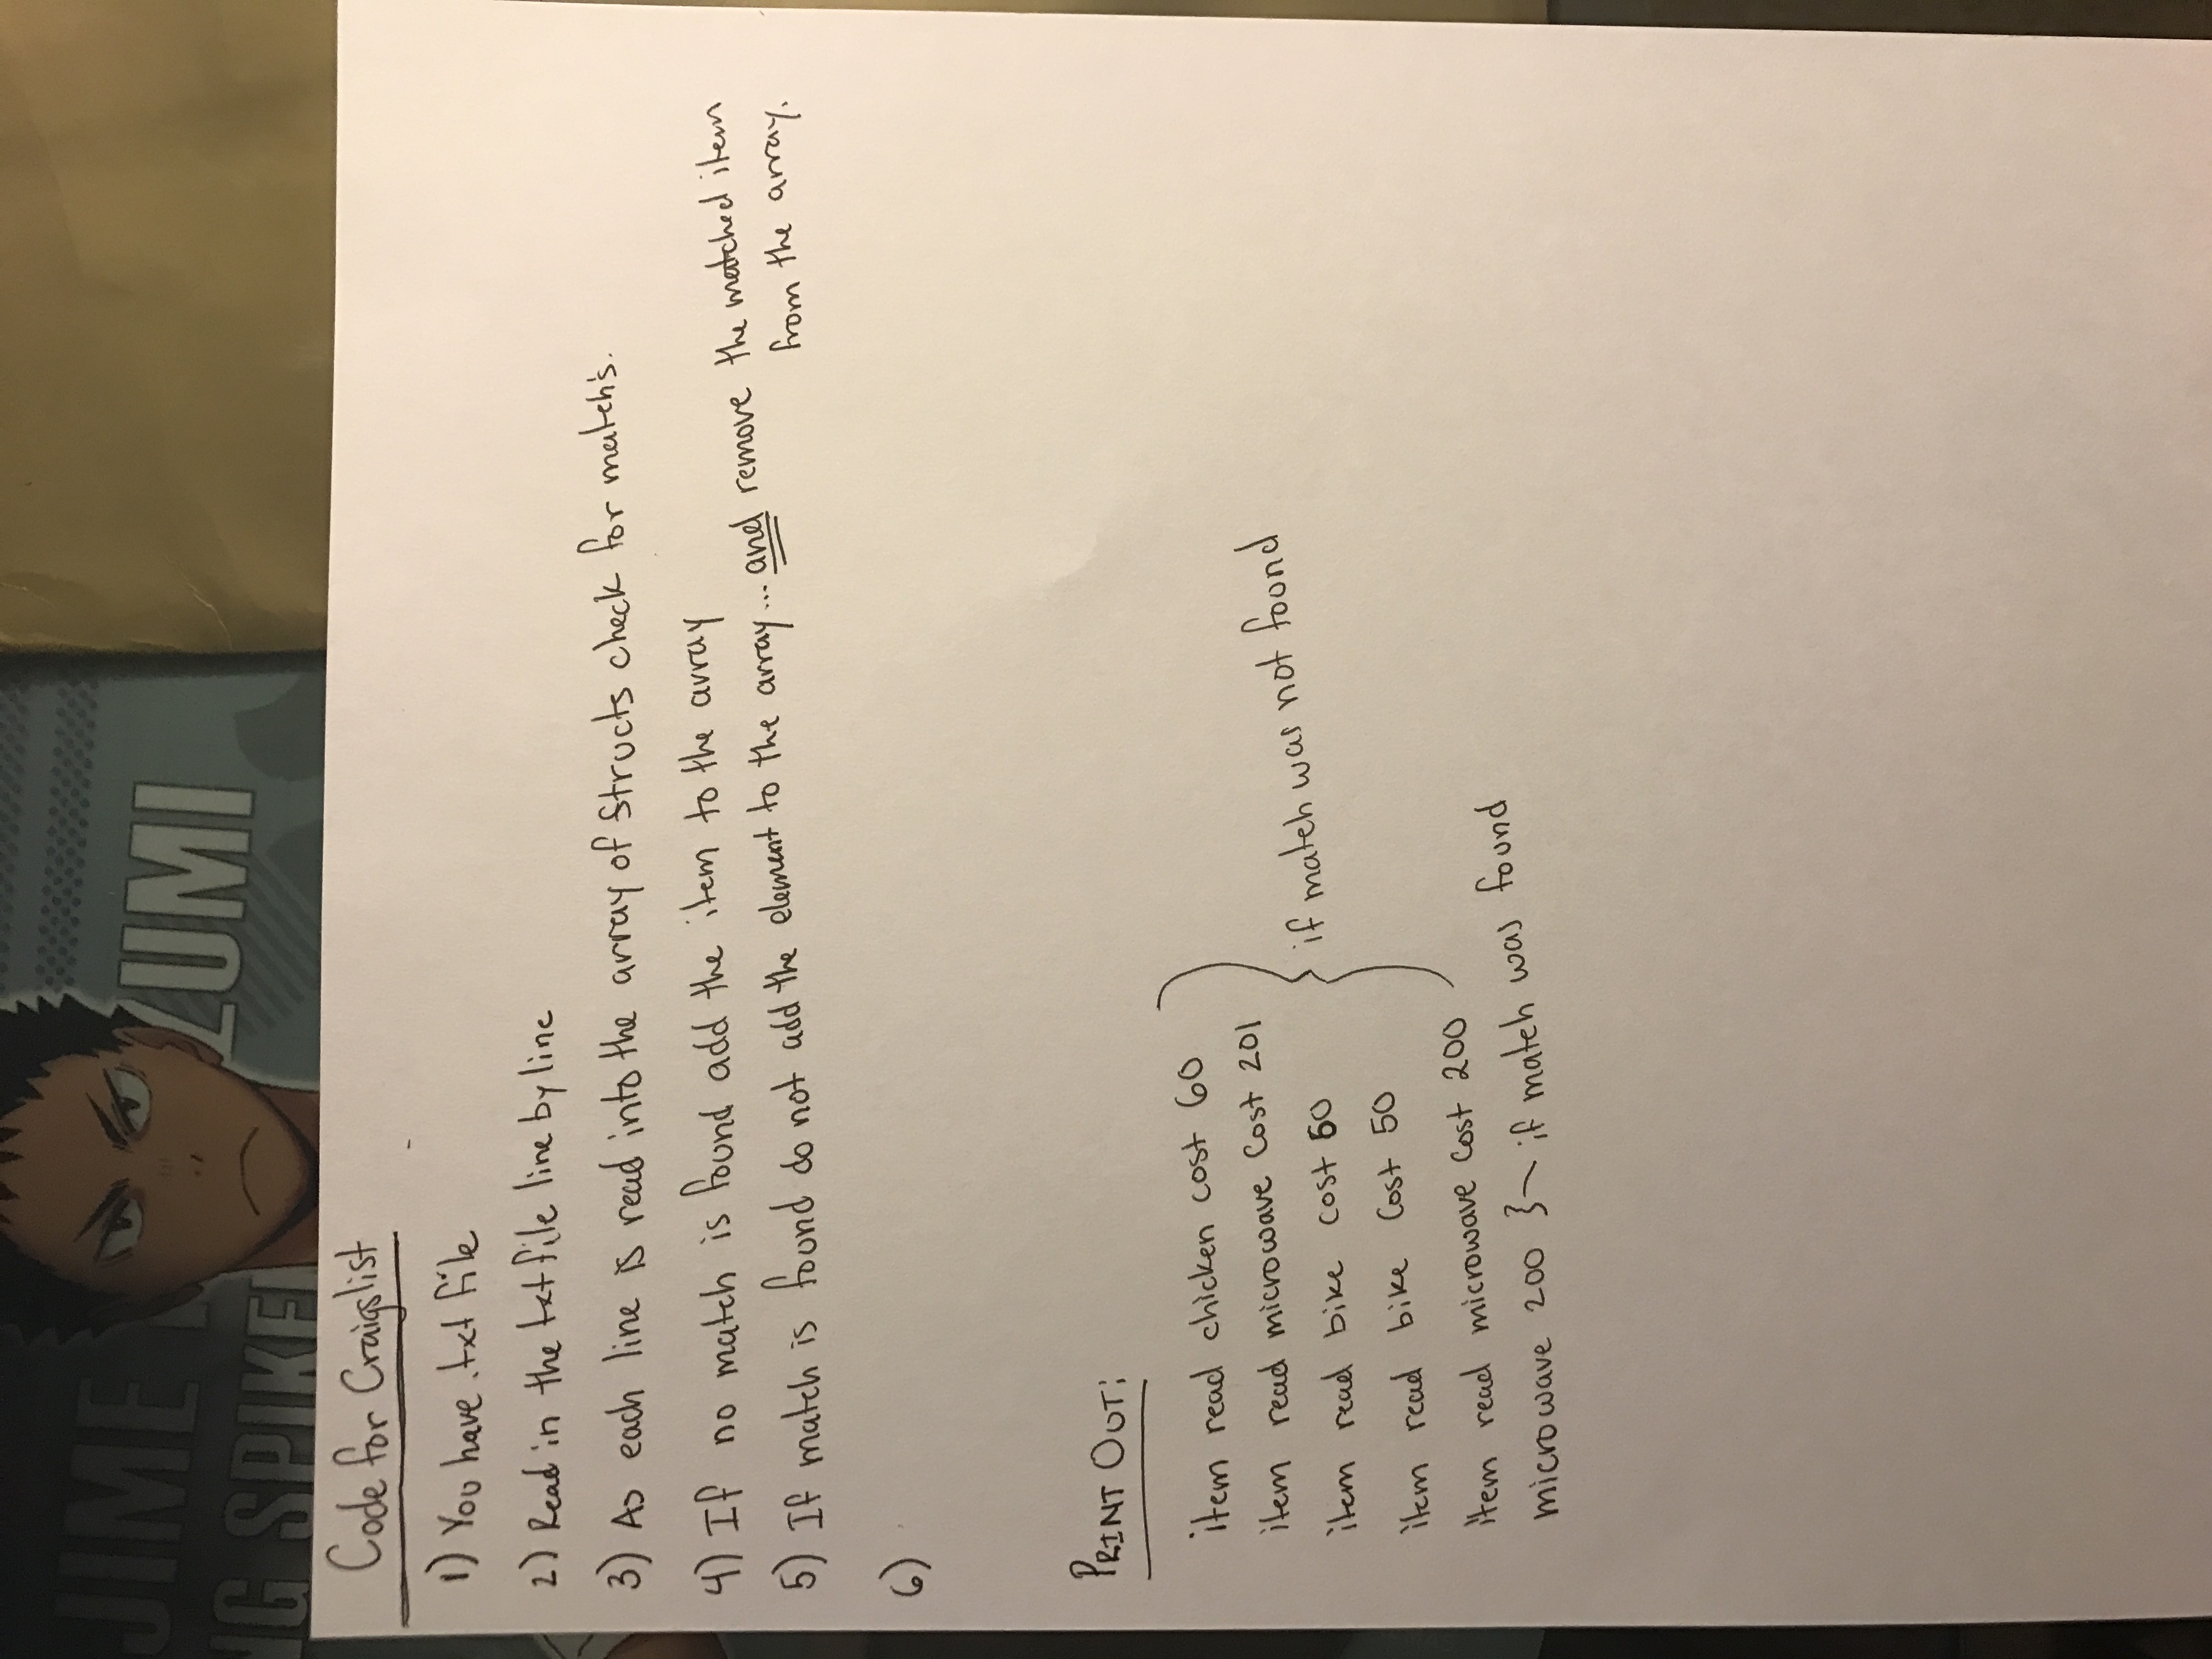 JIME
ZUMI
NG SPIKE
Code for Craigslist
1) You have .txt file
2) Read in the txt file line by line
3) As each line is read into the array of structs check for match's.
4) If no match is found add the item to the array
5) If match is found do not add the element to the array... and remove the matched item
from the array.
6)
PRINT OUT:
item read chicken cost 60
item read microwave cost 201
item read bike cost 60
item read bike cost 50
item read microwave cost 200
if match was not found
microwave 200 }~ if match was found